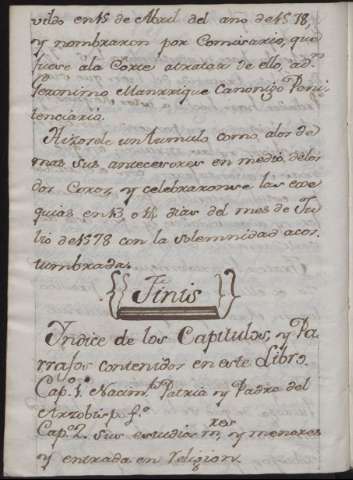 vildo en 15 de Abril del año de 1578,
y nombraron por Comisario, que
fuese a la Corte atratar de ello, a dn.
Geronimo Manrrique Canonigo Peni
tenciario.
Hizosele un tumulo como alos de
mas sus antecesores en medio delos
dos Coros, y celebraronse las exe
quias en 13, o 14 dias del mes de Ju
lio de 1578 con la solemnidad acos
tumbrada.
Finis
Indice de los Capitulos, y Pa
rrafos contenidos en este Libro.
Cap. 1. Nacim.to Patria y Padre del
Arzobispo
Cap. 2. Sus estudios mres y menores
y entrada en religion.